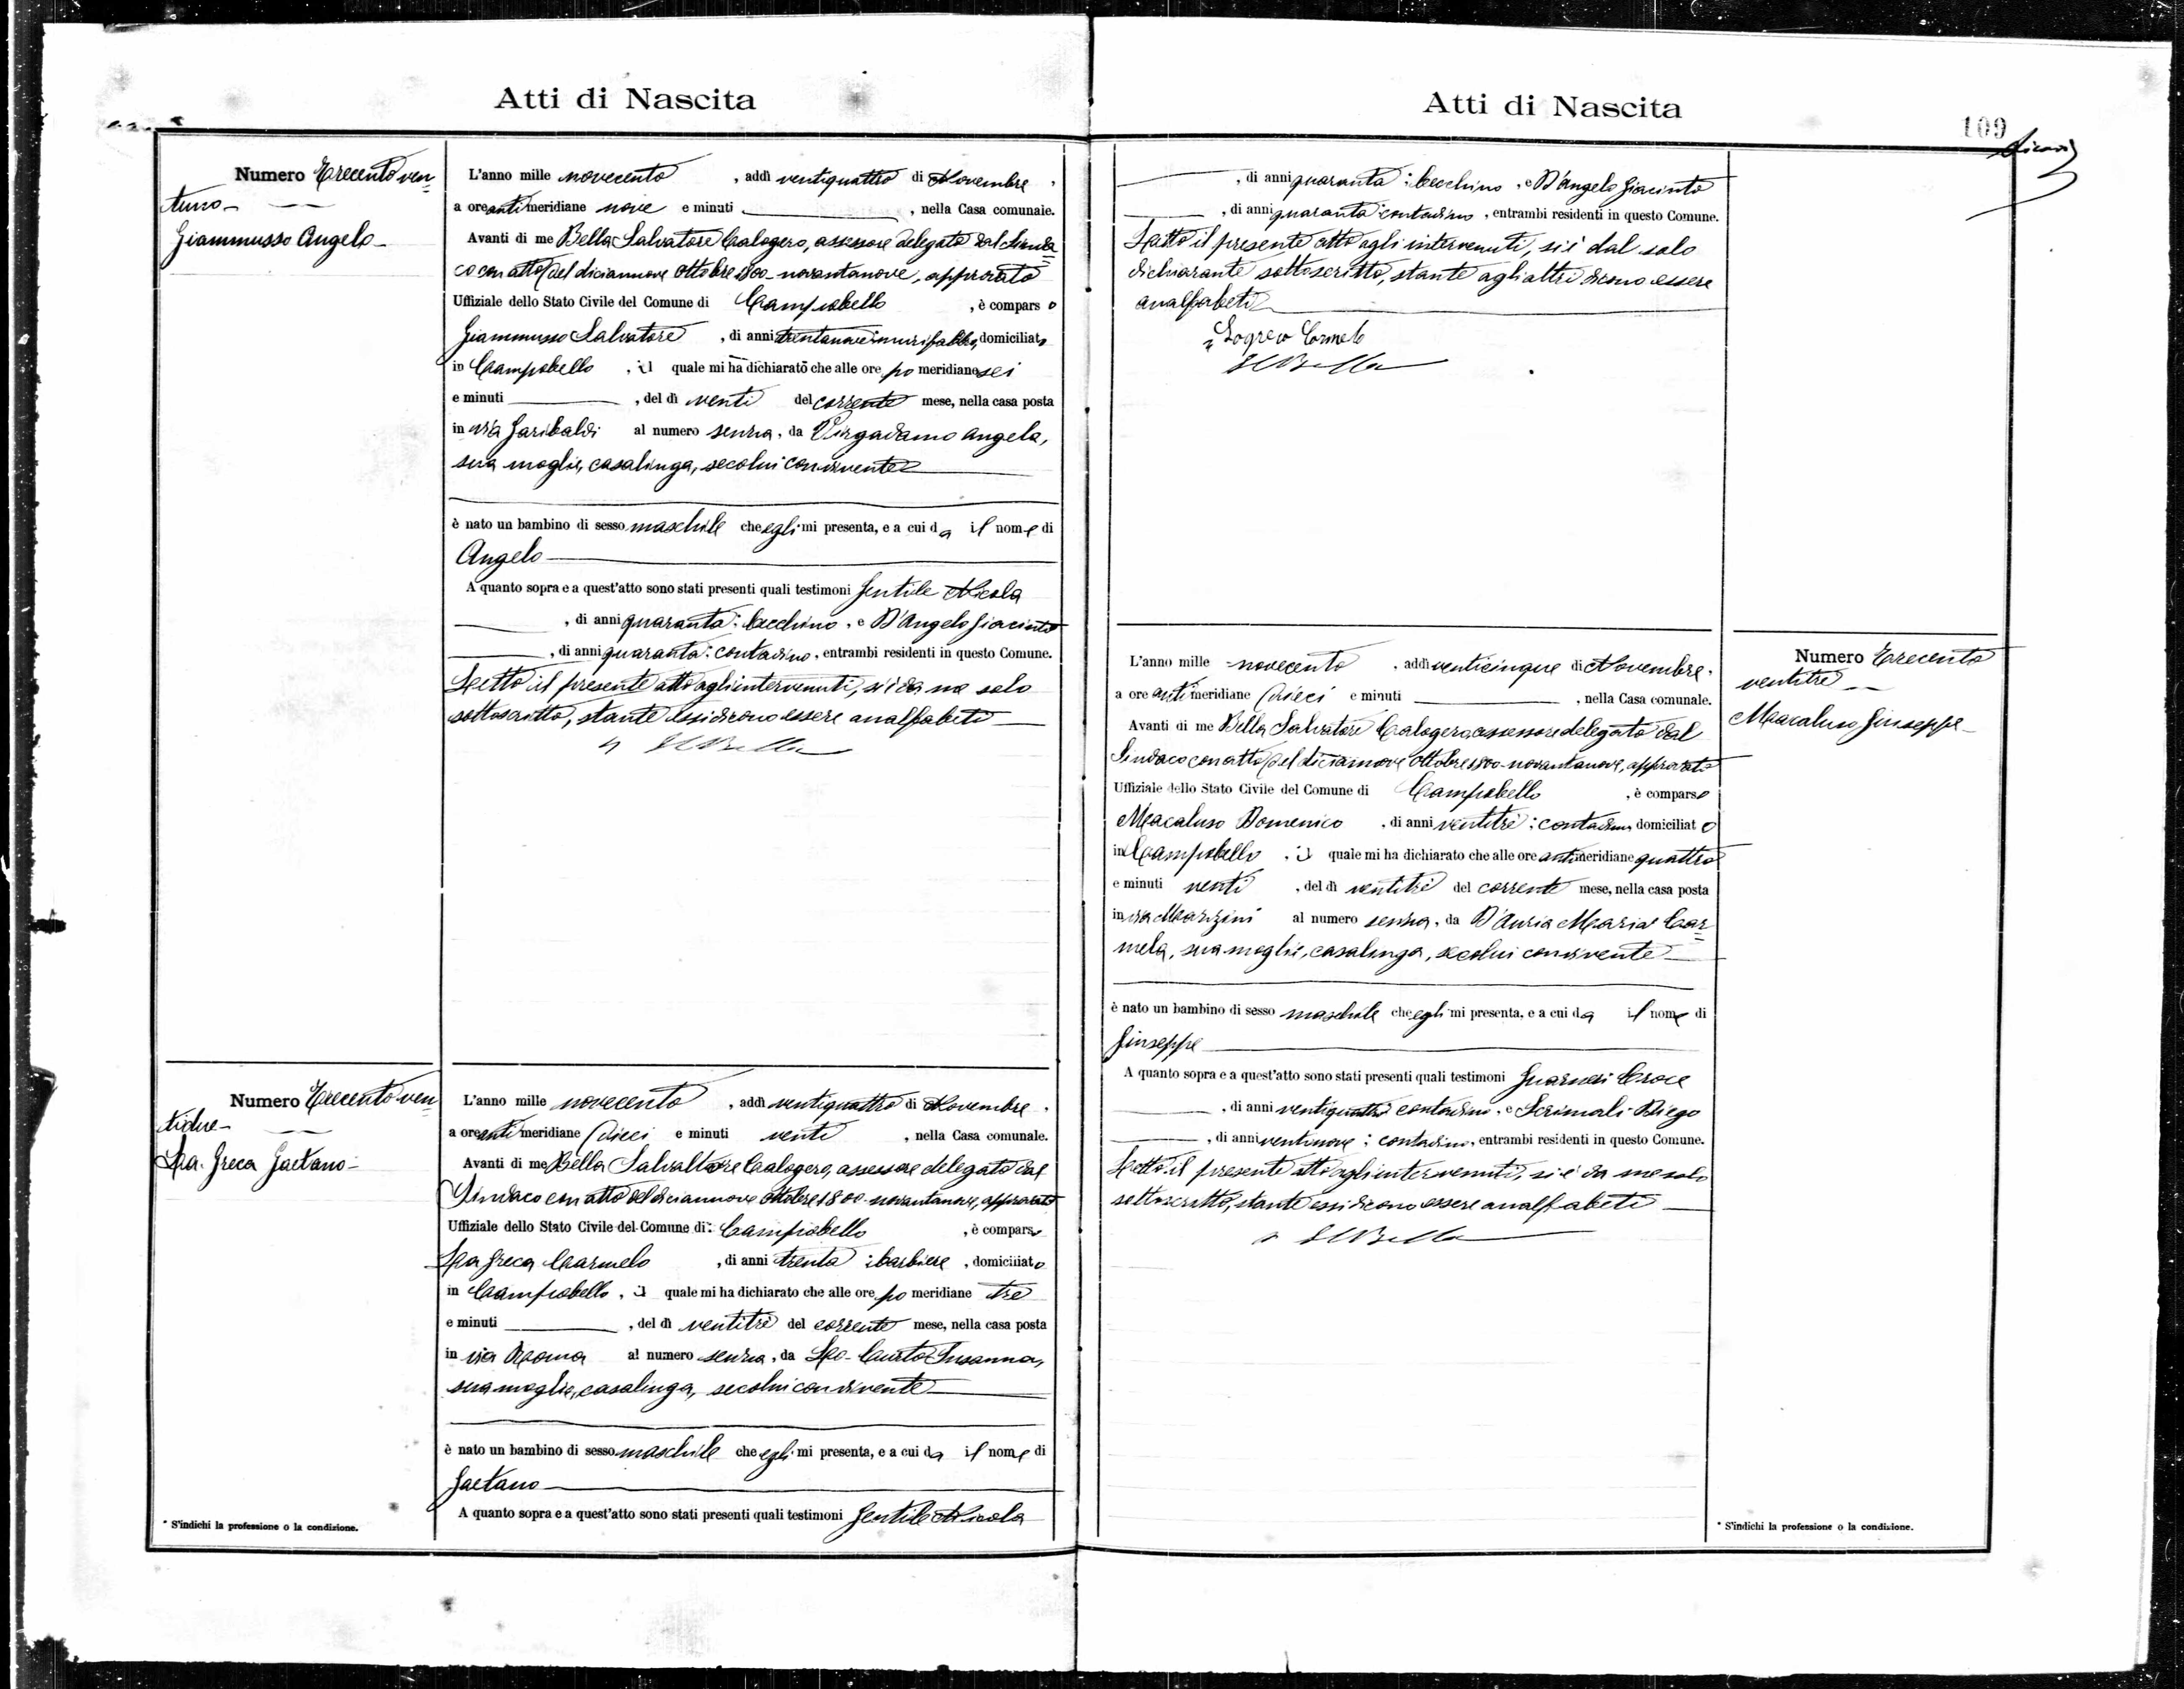 Atti di Nascita
Numero Trecentoven=
tuno
Giammusso Angelo
L'anno mille novecento, addì ventiquattro di Novembre,
a ore antimeridiane nove e minuti, nella Casa comunale.
Avanti di me Bella Salvatore Calogero, assessore delegato dal Sinda=
co con atto del diciannove Ottobre 1800-novantanove, approvato
Uffiziale dello Stato Civile del Comune di Campobello, è comparso
Giammusso Salvatore, di anni trentanove; murifabbro, domiciliato
in Campobello, il quale mi ha dichiarato che alle ore pomeridiane sei
e minuti, del dì venti del corrente mese, nella casa posta
in via Garibaldi al numero senza, da Virgadamo Angela,
sua moglie, casalinga, secolui convivente
è nato un bambino di sesso maschile che egli mi presenta, e a cui dà il nome di
Angelo
A quanto sopra e a quest'atto sono stati presenti quali testimoni Gentile Nicola
, di anni quaranta; becchino, e D'Angelo Giacinto
, di anni quaranta; contadino, entrambi residenti in questo Comune.
Letto il presente atto agli intervenuti, si è da me solo
sottoscritto, stante essi dicono essere analfabeti
SCBella
Numero Trecentoven
tidue
La Greca Gaetano
L'anno mille novecento, addì ventiquattro di Novembre,
a ore antimeridiane dieci e minuti venti, nella Casa comunale.
Avanti di me Bella Salvattore Calogero, assessore delegato dal
Sindaco con atto del diciannove Ottobre 1800-novantanove, approvato
Uffiziale dello Stato Civile del Comune di Campobello, è comparso
La Greca Carmelo, di anni trenta; barbiere, domiciliato
in Campobello, il quale mi ha dichiarato che alle ore pomeridiane tre
e minuti, del dì ventitrè del corrente mese, nella casa posta
in via Roma al numero senza, da Lo-Curto Susanna,
sua moglie, casalinga, secolui convivente
è nato un bambino di sesso maschile che egli mi presenta, e a cui dà il nome di
Gaetano
A quanto sopra e a quest'atto sono stati presenti quali testimoni Gentile Nicola
* S'indichi la professione o la condizione.
Atti di Nascita
109
, di anni quaranta; becchino, e D'Angelo Giacinto
, di anni quaranta contadino, entrambi residenti in questo Comune.
Letto il presente atto agli intervenuti, si è dal solo
dichiarante sottoscritto, stante agli altri dicono essere
analfabeti
Carmelo
SCBella
L'anno mille novecento, addì venticinque di Novembre,
a ore antimeridiane dieci e minuti, nella Casa comunale.
Avanti di me Bella Salvatore Calogero, assessore delegato dal
Sindaco con atto del diciannove Ottobre 1800-novantanove, approvato
Uffiziale dello Stato Civile del Comune di Campobello, è comparso
Macaluso Domenico, di anni ventitrè; contadino, domiciliato
in Campobello, il quale mi ha dichiarato che alle ore antimeridiane quattro
e minuti venti, del dì ventitrè del corrente mese, nella casa posta
in via Mazzini al numero senza, da D'Auria Maria Car=
mela, sua moglie, casalinga, secolui convivente
è nato un bambino di sesso maschile che egli mi presenta, e a cui dà il nome di
Giuseppe
A quanto sopra e a quest'atto sono stati presenti quali testimoni Guarneri Croce
, di anni ventiquattro contadino, e Scrimali Diego
, di anni ventinove; contadino, entrambi residenti in questo Comune.
Letto il presente atto agli intervenuti, si è da me solo
sottoscritto, stante essi dicono essere analfabeti
SCBella
Numero Trecento
ventitrè
Macaluso Giuseppe
* S'indichi la professione o la condizione.